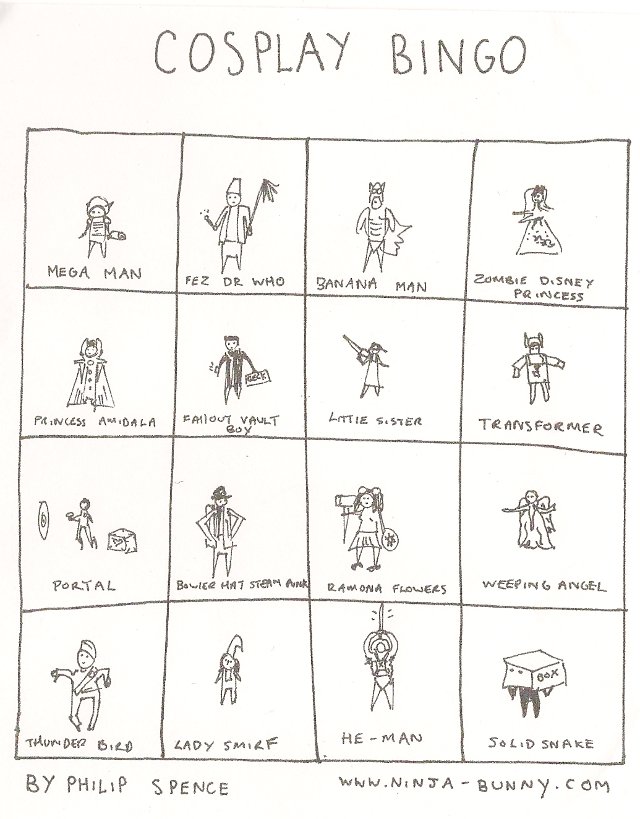 COSPLAY BINGO
MEGA MAN
FEZ DR WHO
BANANA MAN
ZOMBIE DISNEY
PRINCESS
PRINCESS AMIDALA
FALLOUT VAULT
BOY
LITTLE SISTER
TRANSFORMER
PORTAL
BOWLER HAT STEAM PUNK
RAMONA FLOWERS
WEEPING ANGEL
THUNDER BIRD
LADY SMIRF
HE-MAN
BOX
SOLID SNAKE
BY PHILIP SPENCE
WWW.NINJA-BUNNY.COM